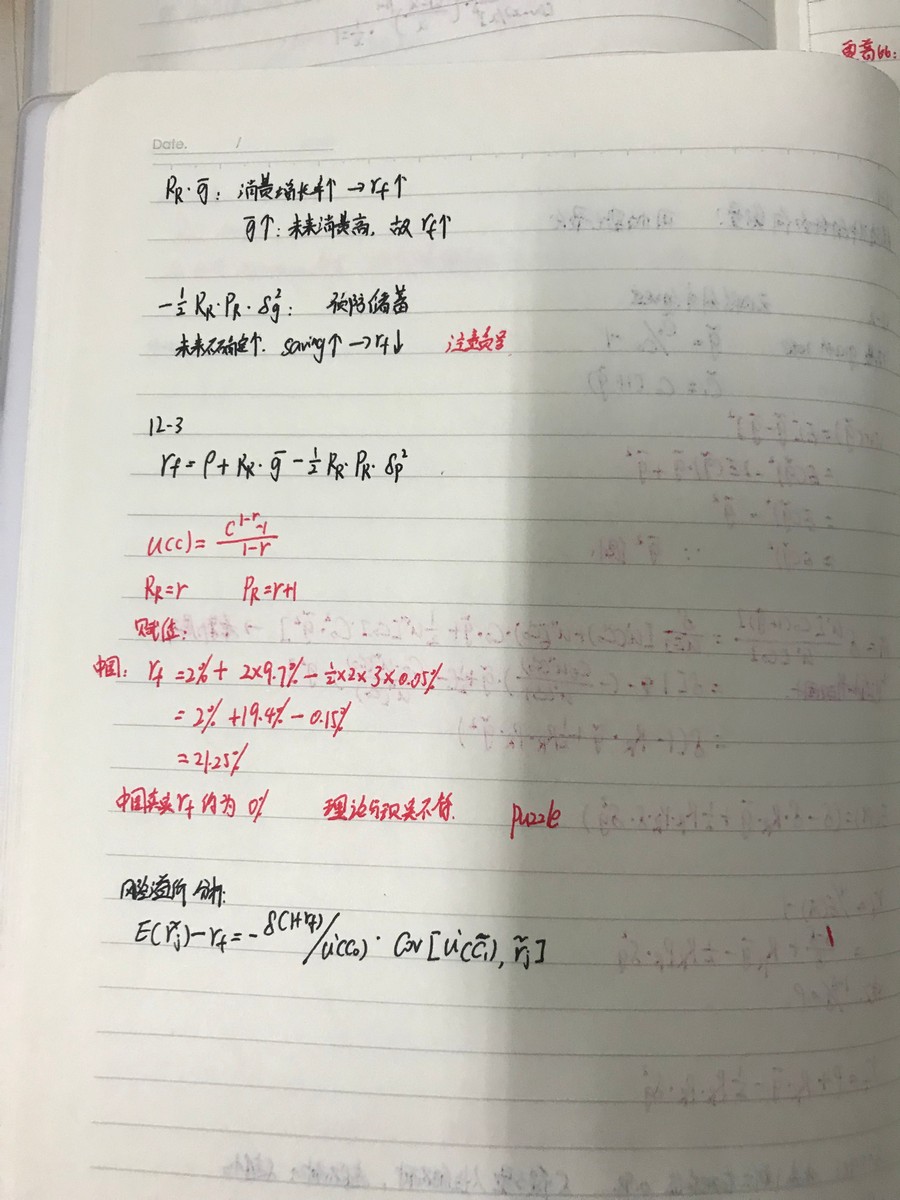 更高66:
Date. /
R_R·ḡ: 消费增长率↑ → r_f↑
ḡ↑: 未来消费高, 故 r_f↑
-½ R_R·P_R·δ_g²: 预防储蓄
未来不确定↑. saving↑ → r_f↓ 注意负号
12-3
r_f = ρ + R_R·ḡ - ½ R_R·P_R·δ_p²
u(c) = (c^(1-r) - 1)/(1-r)
R_R = r P_R = r+1
赋值:
中国: r_f = 2% + 2×9.7% - ½×2×3×0.05%
= 2% + 19.4% - 0.15%
= 21.25%
中国真实 r_f 约为 0% 理论与现实不符. puzzle
风险溢价 分析:
E(r̃_j) - r_f = - δ(1+r_f)/u'(C_0) · Cov [u'(C̃_1), r̃_j]